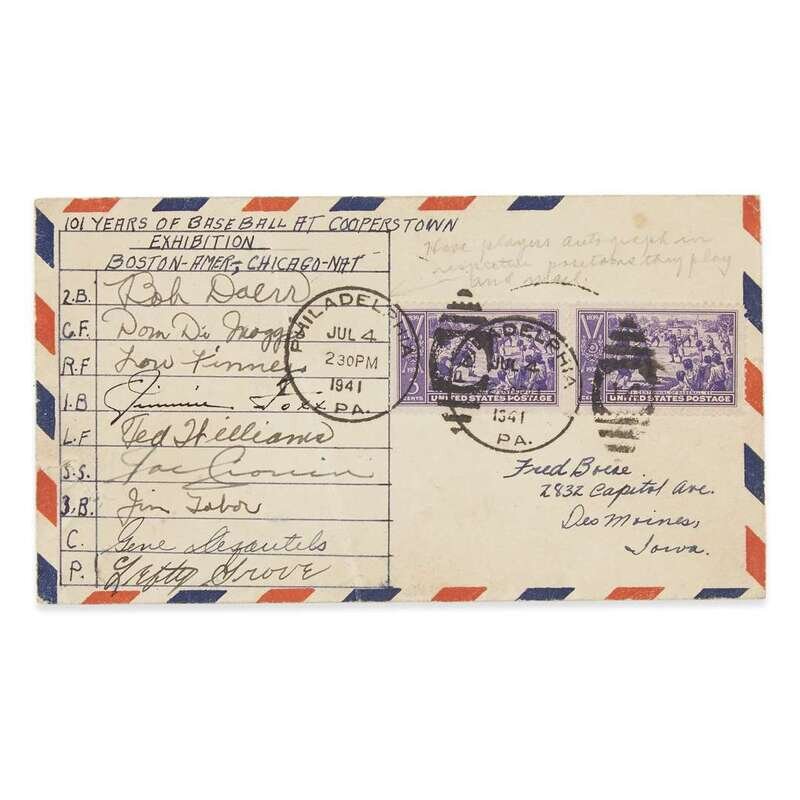 101 YEARS OF BASEBALL AT COOPERSTOWN
EXHIBITION
BOSTON-AMER; CHICAGO-NAT
Have players autograph in
respective positions they play
and mail.
2.B. Bob Doerr
C.F. Dom Di Maggio
R.F Lou Finney
1.B Jimmie Foxx
L.F Ted Williams
S.S. Joe Cronin
3.B. Jim Tabor
C. Gene Desautels
P. Lefty Grove
PHILADELPHIA
JUL 4
230PM
1941
PA.
PHILADELPHIA
JUL 4
1941
PA.
UNITED STATES POSTAGE
1839
CENTENNIAL OF BASEBALL
UNITED STATES POSTAGE
Fred Boese
2832 Capitol Ave.
Des Moines,
Iowa.